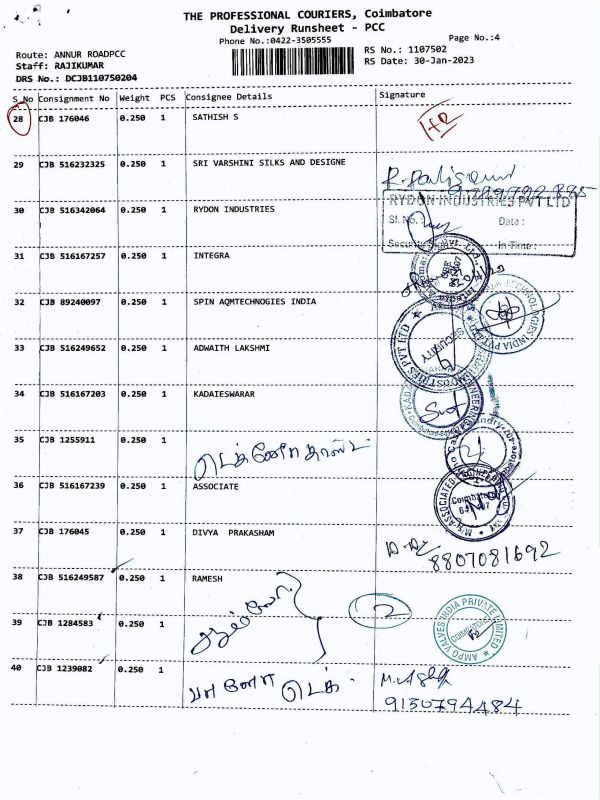 THE PROFESSIONAL COURIERS, Coimbatore
Delivery Runsheet - PCC
Phone No.:0422-3505555
Page No.:4
Route: ANNUR ROADPCC
RS No.: 1107502
Staff: RAJIKUMAR
RS Date: 30-Jan-2023
DRS No.: DCJB110750204
S No Consignment No Weight PCS Consignee Details Signature
28 CJB 176046 0.250 1 SATHISH S
29 CJB 516232325 0.250 1 SRI VARSHINI SILKS AND DESIGNE
30 CJB 516342064 0.250 1 RYDON INDUSTRIES
RYDON INDUSTRIES PVT LTD
Sl. No.: Date :
Security Sign In Time :
31 CJB 516167257 0.250 1 INTEGRA
32 CJB 89240097 0.250 1 SPIN AQMTECHNOGIES INDIA
33 CJB 516249652 0.250 1 ADWAITH LAKSHMI
SECURITY
34 CJB 516167203 0.250 1 KADAIESWARAR
35 CJB 1255911 0.250 1
36 CJB 516167239 0.250 1 ASSOCIATE
M/s. ASSOCIATED
Coimbatore
37 CJB 176045 0.250 1 DIVYA PRAKASHAM
8807081692
38 CJB 516249587 0.250 1 RAMESH
2
39 CJB 1284583 0.250 1
AMPO VALVES INDIA PRIVATE LIMITED
COIMBATORE
40 CJB 1239082 0.250 1
9150794484